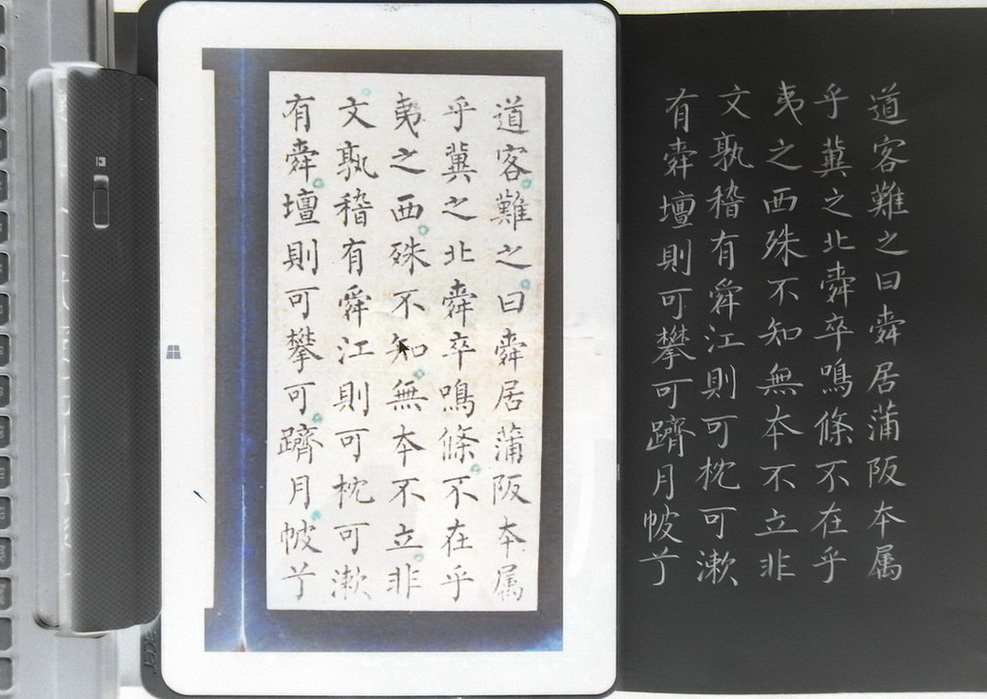 道客難之曰舜居蒲阪本属
乎冀之北舜卒鳴條不在乎
夷之西殊不知無本不立非
文孰稽有舜江則可枕可漱
有舜壇則可攀可躋月帔
道客難之曰舜居蒲阪本属
乎冀之北舜卒鳴條不在乎
夷之西殊不知無本不立非
文孰稽有舜江則可枕可漱
有舜壇則可攀可躋月帔
acer